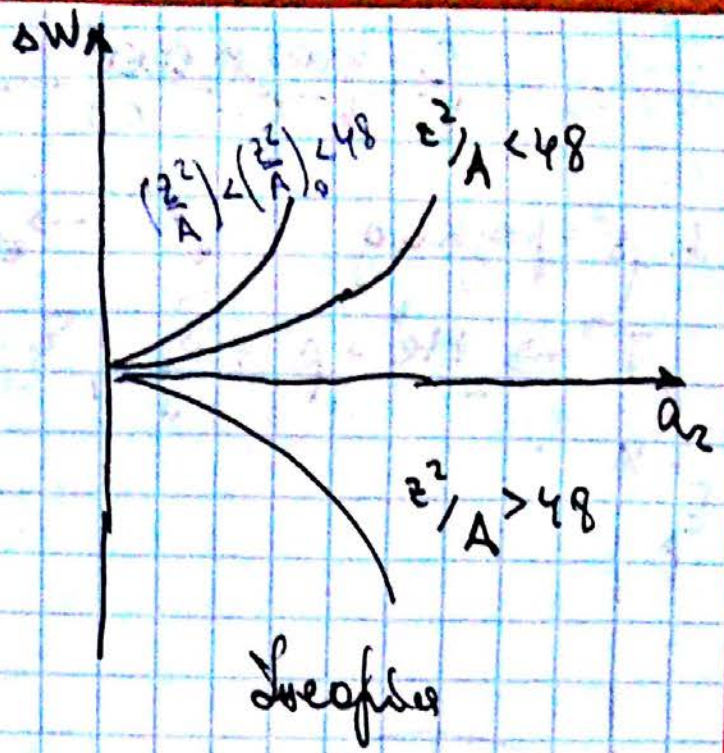 ΔW
(z²/A) < (z²/A)₀ < 48
z²/A < 48
a₂
z²/A > 48